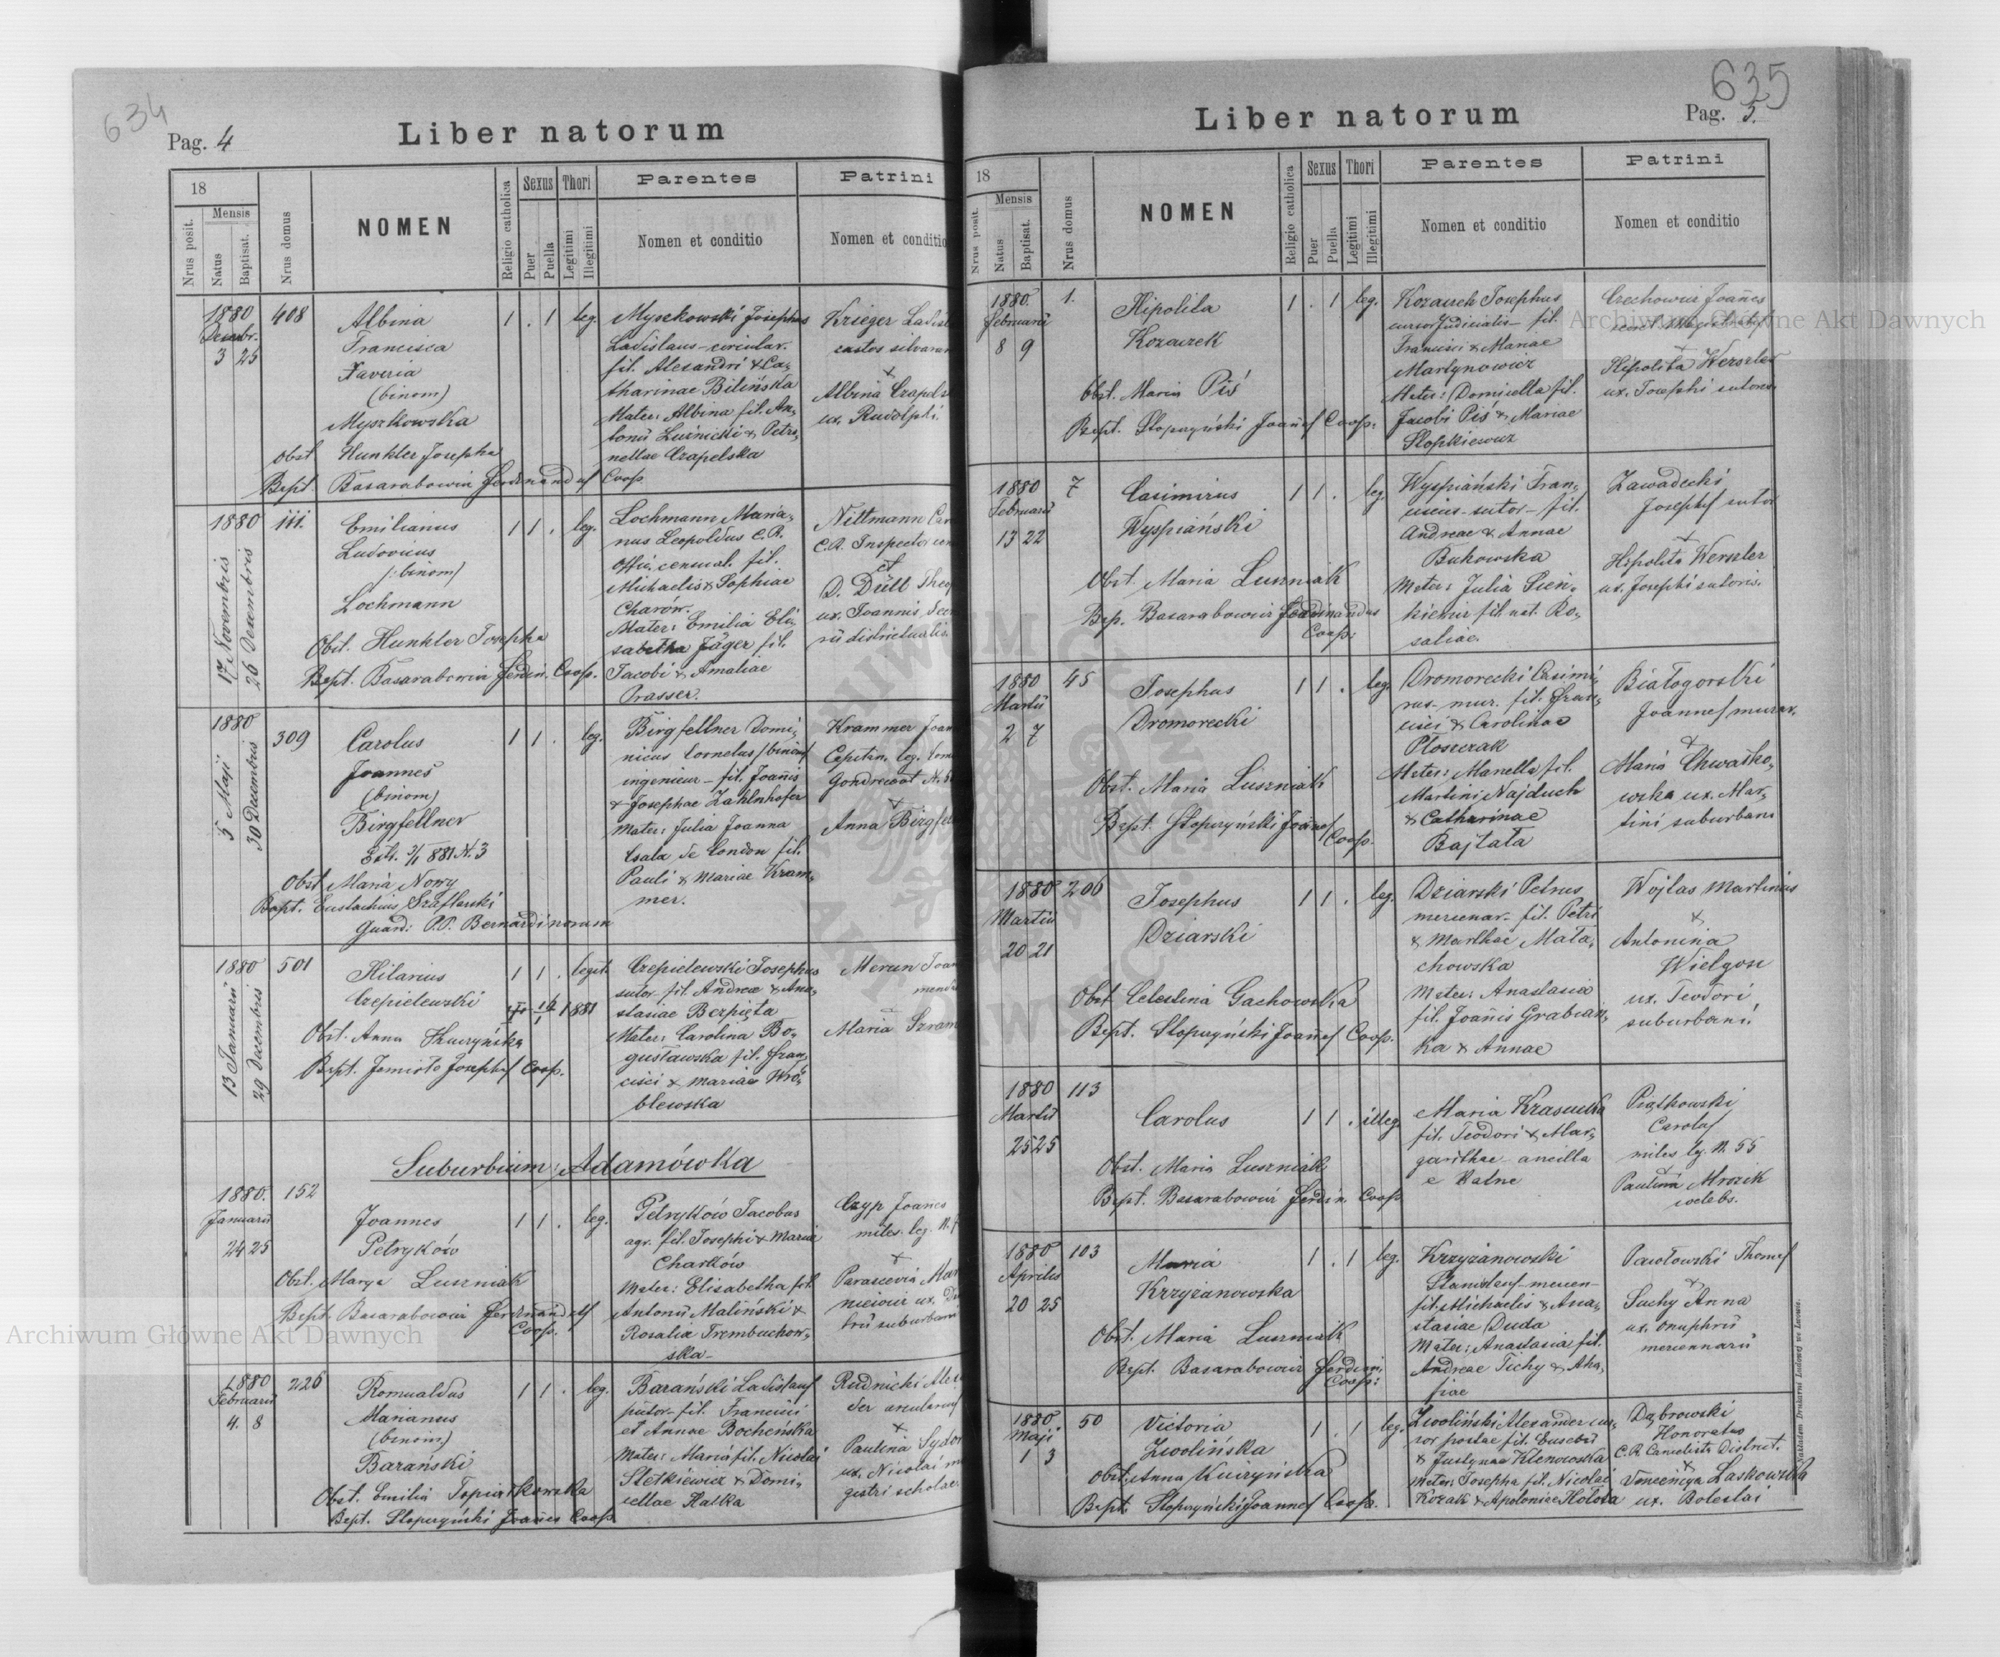 634
Pag. 4
Liber natorum
18
Nrus posit.
Mensis
Natus
Baptisat.
Nrus domus
NOMEN
Religio catholica
Sexus
Puer
Puella
Thori
Legitimi
Illegitimi
Parentes
Nomen et conditio
Patrini
Nomen et conditio
1880
Decembr.
3 25
408
Albina
Francisca
Xaveria
(binom)
Myszkowska
obst Hunkler Josepha
Bapt. Basarabowicz Ferdinandus Coop.
1 . 1 leg.
Myszkowski Josephus
Ladislaus - circular.
fil. Alexandri & Ca-
tharinae Bilińska
Mater: Albina fil. An-
tonii Luźnicki & Petro-
nellae Czapelska
Krieger
custos silvarum
+
Albina
ux. Rudolphi.
1880
17 Novembris
26 Decembris
111.
Emilianus
Ludovicus
/:binom/
Lochmann
Obst. Hunkler Josepha
Bapt. Basarabowicz Ferdin. Coop.
1 1 . leg.
Lochmann Maria-
nus Leopoldus C.R.
offic. censual. fil.
Michaelis & Sophiae
Charow.
Mater: Emilia Eli-
sabetha Jäger fil.
Jacobi & Amaliae
Prasser.
Nittmann
C.R. Inspector
et
D. Düll
ux. Joannis
districtualis.
1880
5 Maji
30 Decembris
309
Carolus
Joannes
(binom)
Birgfellner
Extr. 3/1 881 N. 3
Obst Maria Nowy
Bapt. Eustachius Szaflarski
Guard: P.P. Bernardinorum
1 1 . leg.
Birgfellner Domi-
nicus Cornelus /binom/
ingenieur - fil. Joañis
& Josephae Zahlnhofer
Mater: Julia Joanna
Csala de London fil.
Pauli & Mariae Kram-
mer.
Krammer
Capitan. leg.
Gondrecourt
+
Anna
1880
13 Januarii
29 Decembris
501
Hilarius
Czepielewski
Obst. Anna Kuczyńska
Bapt. Jemioło Josephus Coop.
1 1 . legit.
1881
Czepielewski Josephus
sutor fil. Andreae & Ana-
stasiae Bezpięta
Mater: Carolina Bo-
gusławska fil. Fran-
cisci & Mariae Wró-
blewska
Merun
Maria
Suburbium: Adamówka
1880.
Januarii
24 25
152
Joannes
Petryków
Obst. Marya Luszniak
Bapt. Basarabowicz Ferdinandus
Coop.
1 1 . leg.
Petryków Jacobus
agr. fil. Josephi & Mariae
Charków
Mater: Elisabetha fil.
Antonii Maliński &
Rosalia Trembuchow-
ska -
Czyp Joannes
miles leg. N.
+
Parascevia
ux.
suburbani
1880
Februarii
4. 8
226
Romualdus
Marianus
(binom)
Barański
Obst. Emilia Topiarkowska
Bapt. Słopczyński Joannes Coop
1 1 . leg.
Barański Ladislaus
pictor - fil. Francisci
et Annae Bocheńska
Mater: Maria fil. Nicolai
Stetkiewicz & Domi-
cellae Hałka
Rudnicki
+
Paulina
ux. Nicolai
gistri scholae.
635
Pag. 5.
Liber natorum
18
Nrus posit.
Mensis
Natus
Baptisat.
Nrus domus
NOMEN
Religio catholica
Sexus
Puer
Puella
Thori
Legitimi
Illegitimi
Parentes
Nomen et conditio
Patrini
Nomen et conditio
1880.
Februarii
8 9
1.
Hipolita
Kozaczek
Obst. Maria Piś
Bapt. Słopczyński Joañes Coop.
1 . 1 leg.
Kozaczek Josephus
cursor Judicialis - fil.
Francisci & Mariae
Martynowicz
Mater: Domicella fil.
Jacobi Piś & Mariae
Słopkiewicz
Czechowicz Joañes
+
Hipolita Werszler
ux. Josephi sutoris
1880
Februarii
13 22
7
Casimirus
Wyspiański
Obst. Maria Luszniak
Bap. Basarabowicz Ferdinandus
Coop:
1 1 . leg.
Wyspiański Fran-
ciscus - sutor - fil.
Andreae & Annae
Bukowska
Mater: Julia Sien-
kiewicz fil. nat. Ro-
saliae.
Zawadecki
Josephus sutor
+
Hipolita Werszler
ux. Josephi sutoris.
1880
Martii
2 7
45
Josephus
Dromorecki
Obst. Maria Luszniak
Bapt. Słopczyński Joañes
Coop.
1 1 . leg.
Dromorecki Casimi-
rus - mur. fil. Fran-
cisci & Carolinae
Płoszczak
Mater: Manella fil.
Martini Najduch
& Catharinae
Bajtała
Białogorski
Joannes murar.
&
Maria Chwałko-
wska ux. Mar-
tini suburbani
1880
Martii
20 21
206
Josephus
Dziarski
Obst Celestina Gachowska
Bapt. Słopczyński Joañes Coop.
1 1 . leg.
Dziarski Petrus
mercenar - fil. Petri
& Marthae Mała-
chowska
Mater: Anastasia
fil. Joañis Grabian-
ka & Annae
Wojtas Martinus
+
Antonina
Wielgosz
ux. Teodori
suburbani.
1880
Martii
25 25
113
Carolus
Obst. Maria Luszniak
Bapt. Basarabowicz Ferdin. Coop
1 1 . illeg.
Maria Krasucka
fil. Teodori & Mar-
garithae - ancilla
e Kalne
Piątkowski
Carolus
miles leg. N. 55
+
Paulina Mrozik
caelebs.
1880
Aprilis
20 25
103
Maria
Krzyżanowska
Obst. Maria Luszniak
Bapt. Basarabowicz Ferdin.
Coop:
1 . 1 leg.
Krzyżanowski
Stanislaus - mercen -
fil. Michaelis & Ana-
stasiae Duda
Mater: Anastasia fil.
Andreae Tichy & Aha-
fiae
Pawłowski Thomas
+
Suchy Anna
ux. Onuphrii
mercennarii
1880
Maji
1 3
50
Victoria
Zwolińska
Obst. Anna Kuczyńska
Bapt. Słopczyński Joannes Coop.
1 . 1 leg.
Zwoliński Alexander cur-
sor postae fil. Eusebii
& Justynae Klenowska
Mater: Josepha fil. Nicolai
Kozak & Apoloniae Hołota
Dąbrowski
Honoratus
C.R. Cancelista District.
+
Vincencya Laskowska
ux. Boleslai
Nakładem Drukarni Ludowej we Lwowie.
Archiwum Główne Akt Dawnych
Archiwum Główne Akt Dawnych